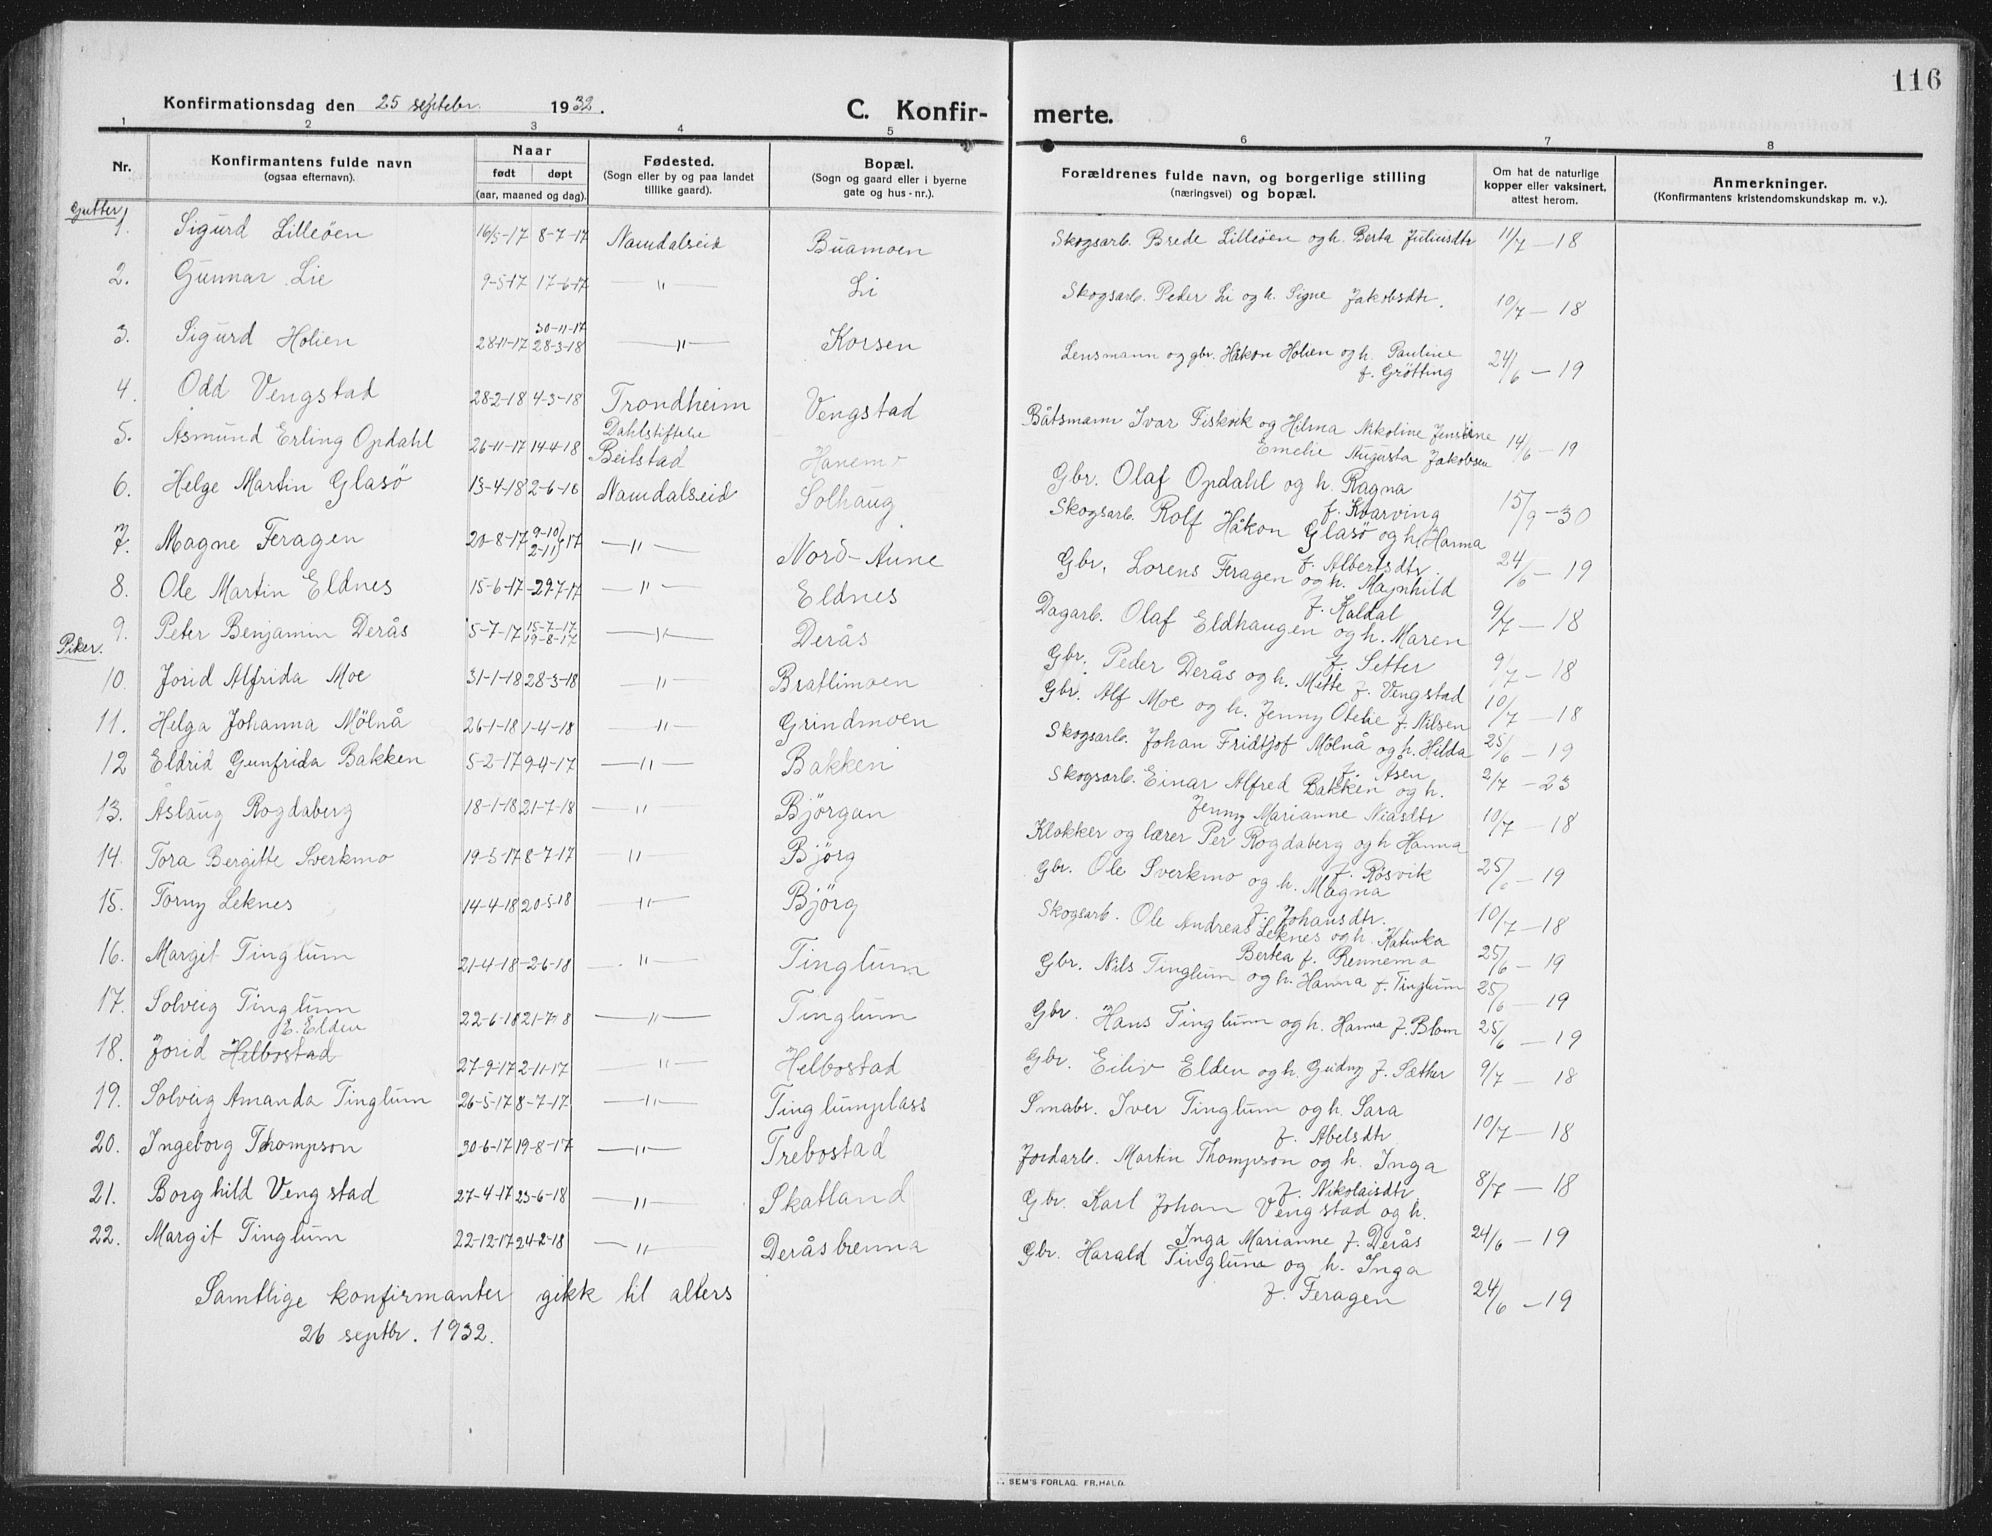 116
Konfirmationsdag den 25 septebr. 1932.
C. Konfir-
merte.
1 2 3 4 5 6 7 8
Nr.
Konfirmantens fulde navn
(ogsaa efternavn).
Naar
født døpt
(aar, maaned og dag).
Fødested.
(Sogn eller by og paa landet
tillike gaard).
Bopæl.
(Sogn og gaard eller i byerne
gate og hus-nr.).
Forældrenes fulde navn, og borgerlige stilling
(næringsvei) og bopæl.
Om hat de naturlige
kopper eller vaksinert,
attest herom.
Anmerkninger.
(Konfirmantens kristendomskundskap m. v.).
Gutter
1. Sigurd Lilleøen 16/5-17 8-7-17 Namdalseid Buamoen Skogsarb. Brede Lilleøen og h. Berta Juliusdtr 11/7 - 18
2. Gunnar Lie 9-5-17 17-6-17 — " — Li Skogsarb. Peder Li og h. Signe Jakobsdtr. 10/7 - 18
30-11-17
3. Sigurd Holien 28-11-17 28-3-18 — " — Korsen Lensmann og gbr. Håkon Holien og h. Pauline 24/6 - 19
f. Grötting
4. Odd Vengstad 28-2-18 4-3-18 Trondheim Vengstad Båtsmann Ivar Fiskvik og Hilma Nikoline Jensine
Dahlstiftelse
Emelie Augusta Jakobsen 14/6 - 19
5. Asmund Erling Opdahl 26-11-17 14-4-18 Beitstad Hanemo Gbr. Olaf Opdahl og h. Ragna
f. Kvarving 15/9 - 30
6. Helge Martin Glasö 13-4-18 2-6-18 Namdalseid Solhaug Skogsarb. Rolf Håkon Glasö og h. Hanna
f. Albertsdtr. 24/6 - 19
7. Magne Feragen 20-8-17 9-10 2-11 17 — " — Nord-Aune Gbr. Lorens Feragen og h. Magnhild
f. Kaldal 9/7 - 18
8. Ole Martin Eldnes 15-6-17 29-7-17 — " — Eldnes Dagarb. Olaf Eldhaugen og h. Maren
f. Setter 9/7 - 18
9. Peter Benjamin Derås 5-7-17 15-7-17 19-8-17 — " — Derås Gbr. Peder Derås og h. Mette f. Vengstad 10/7 - 18
Piker.
10. Jorid Alfrida Moe 31-1-18 28-3-18 — " — Brattimoen Gbr. Alf Moe og h. Jenny Otelie f. Nilsen 25/6 - 19
11. Helga Johanna Mölnå 26-1-18 1-4-18 — " — Grindmoen Skogsarb. Johan Fridtjof Mölnå og h. Hilda
f. Åsen 2/7 - 23
12 Eldrid Gunfrida Bakken 5-2-17 9-4-17 — " — Bakken Skogsarb. Einar Alfred Bakken og h.
Jenny Marianne Niasdtr 10/7 - 18
13. Åslaug Rogdaberg 18-1-18 21-7-18 — " — Björgan Klokker og lærer Per Rogdaberg og h Hanna
f. Rösvik 25/6 - 19
14. Tora Bergitte Sverkmo 19-5-17 8-7-17 — " — Björg Gbr. Ole Sverkmo og h. Magna
f. Johansdtr. 10/7 - 18
15. Torny Leknes 14-4-18 20-5-18 — " — Björg Skogsarb. Ole Andreas Leknes og h. Katinka
Bertea f. Rennemo 25/6 - 19
16. Margit Tinglum 21-4-18 2-6-18 — " — Tinglum Gbr. Nils Tinglum og h. Hanna f. Tinglum 25/6 - 19
17. Solveig Tinglum 22-6-18 21-7-18 — " — Tinglum Gbr. Hans Tinglum og h. Hanna f. Blom 25/6 - 19
E. Elden
18. Jorid Helbostad 27-9-17 2-11-17 — " — Helbostad Gbr. Eiliv Elden og h. Gudny f. Sæther 9/7 - 18
19. Solveig Amanda Tinglum 26-5-17 8-7-17 — " — Tinglumplass Smabr. Iver Tinglum og h. Sara
f. Abelsdtr 10/7 - 18
20. Ingeborg Thompson 30-6-17 19-8-17 — " — Trebostad Jordarb. Martin Thompson og h. Inga
f. Nikolaisdtr 8/7 - 18
21. Borghild Vengstad 27-4-17 23-6-18 — " — Skatland Gbr. Karl Johan Vengstad og h.
Inga Marianne f. Derås 24/6 - 19
22. Margit Tinglum 22-12-17 24-2-18 — " — Deråsbrenna Gbr. Harald Tinglum og h. Inga
f. Feragen 24/6 - 19
Samtlige konfirmanter gikk til alters
26 septbr. 1932.
SEM'S FORLAG. FR.HALD.